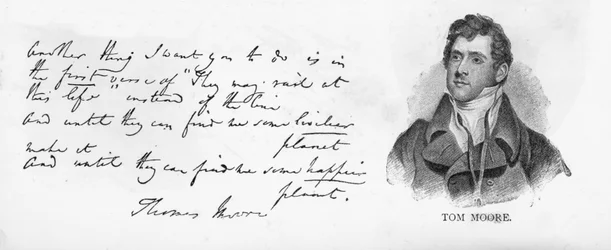 Another thing I want you to do is in
the first verse of "They may rail at
this life" instead of the line
And until they can find me some livelier
planet
make it
And until they can find me some happier
planet.
Thomas Moore
TOM MOORE.